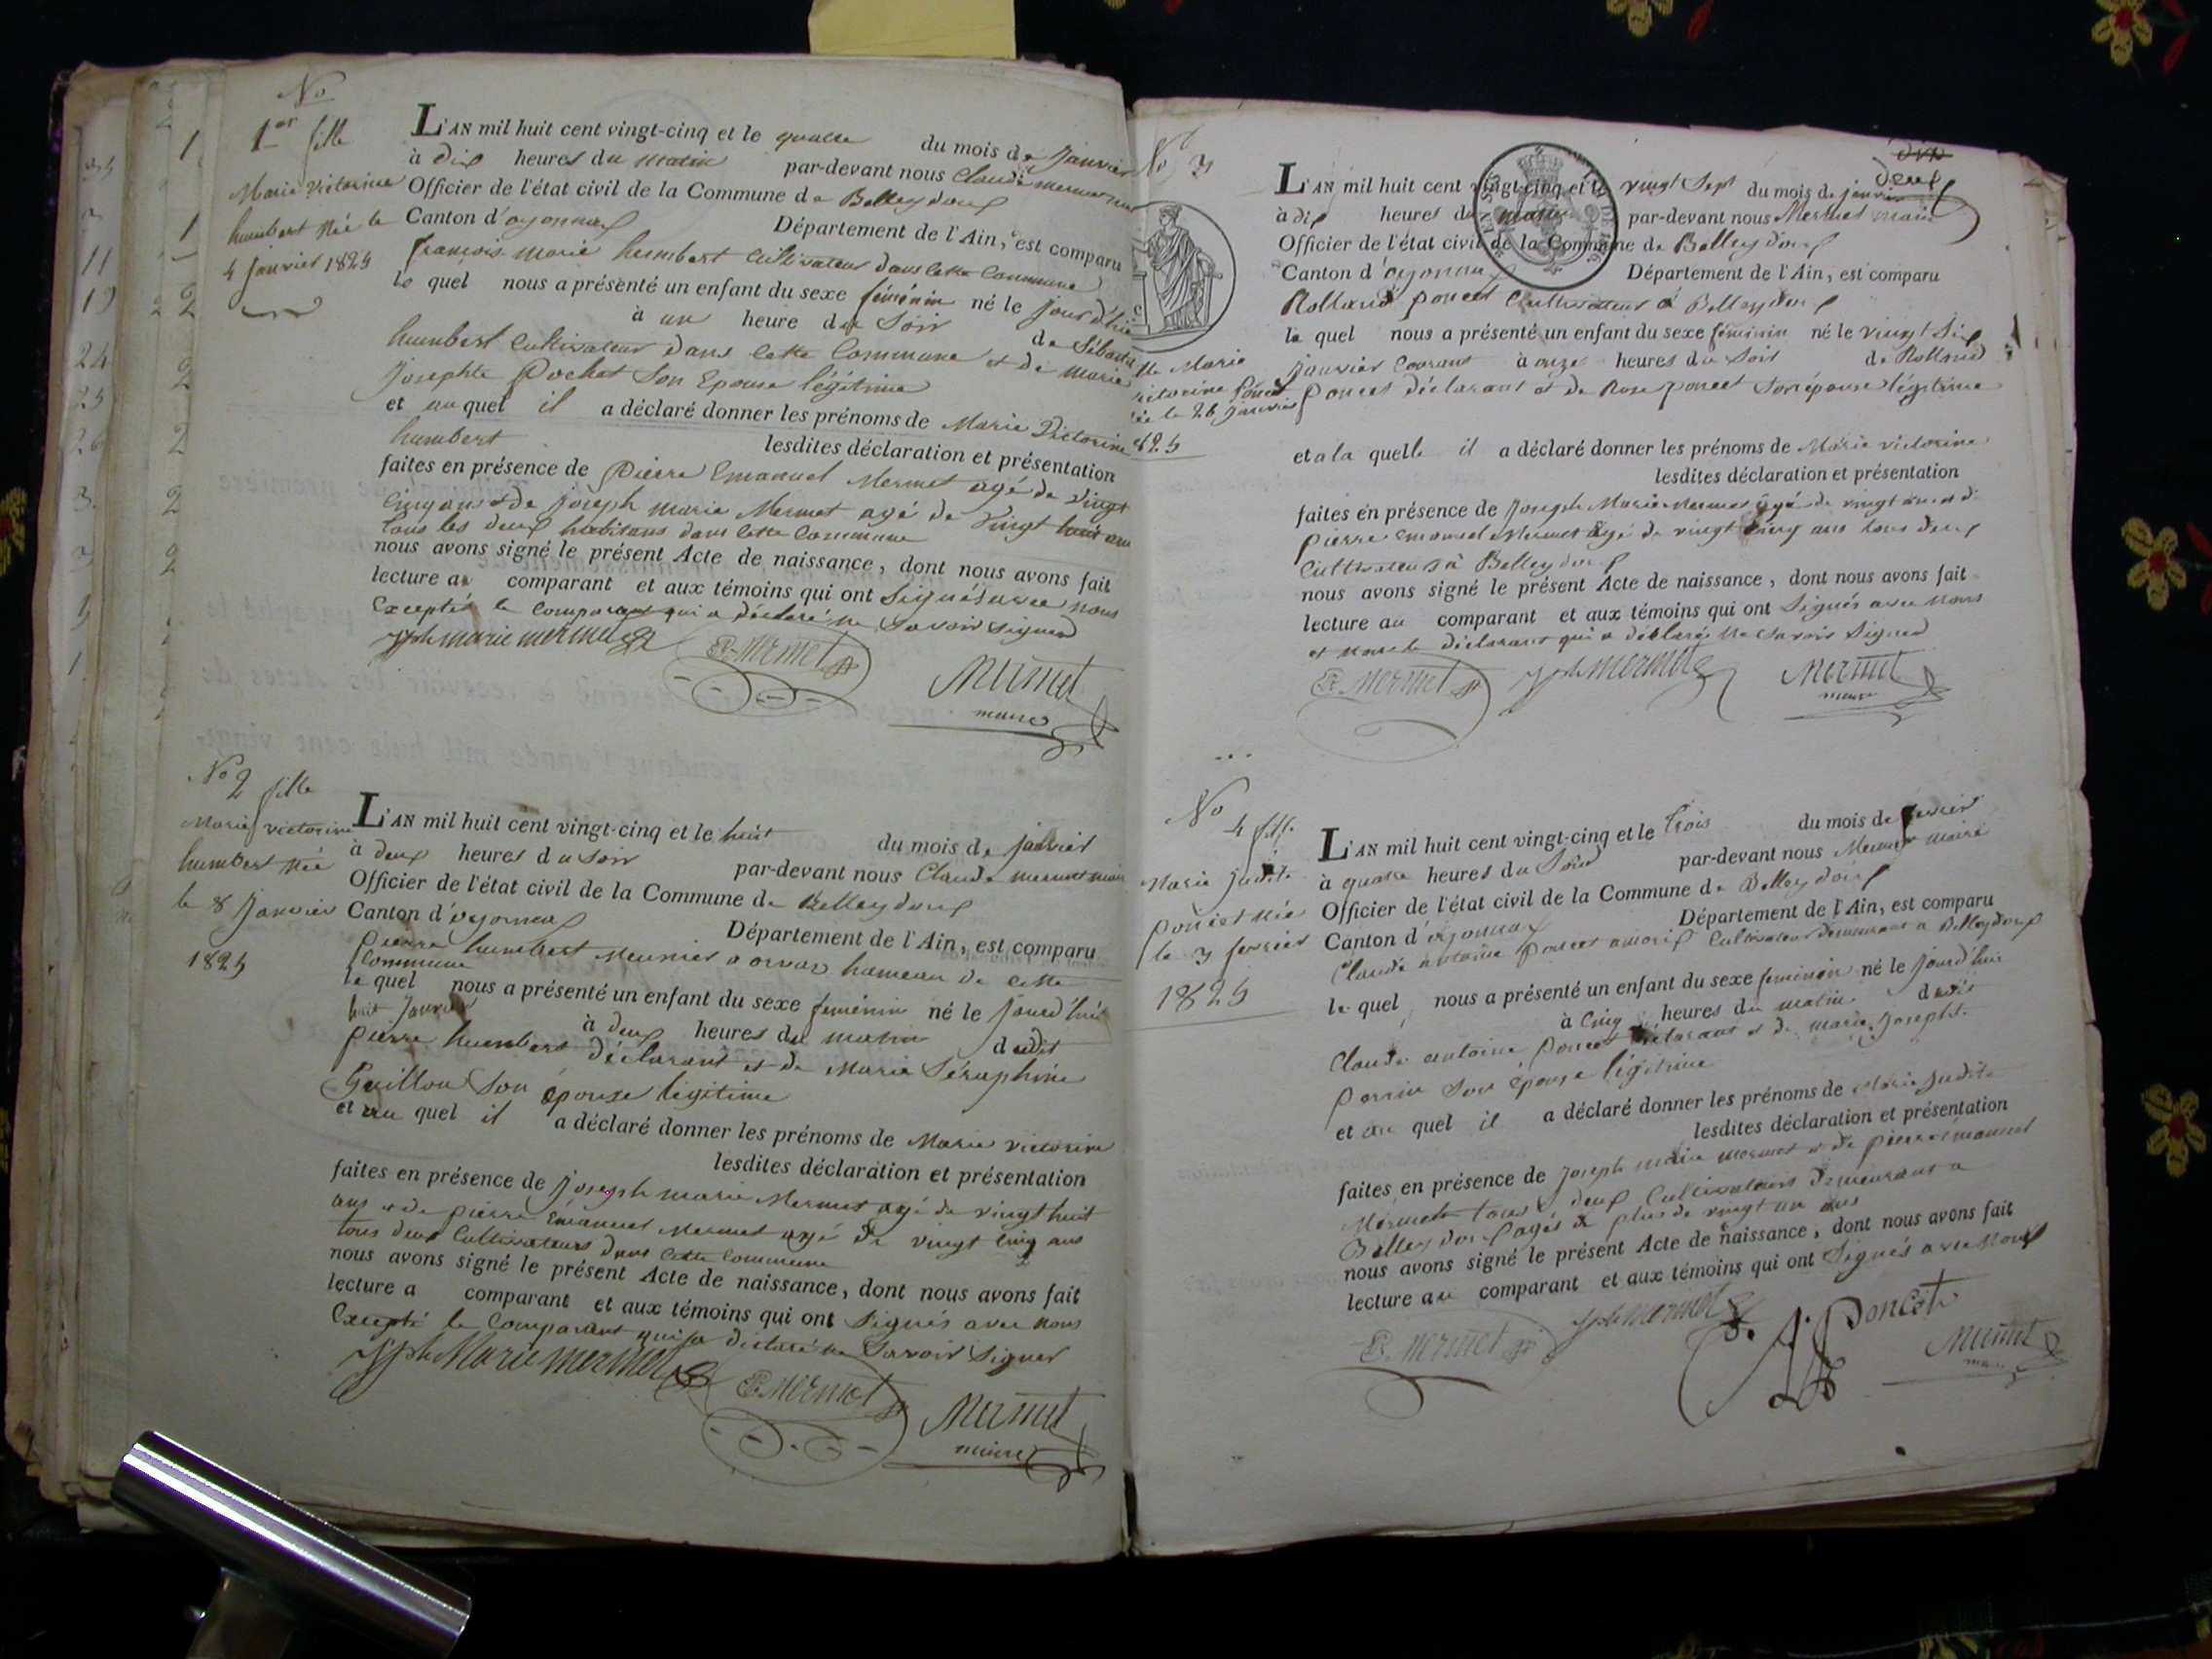 No
1er fille
Marie Victorine
humbert Née le
4 janvier 1825
L'AN mil huit cent vingt-cinq et le quatre du mois de Janvier
à dix heures du matin par-devant nous Claude mermet
Officier de l'état civil de la Commune de Belleydoux
Canton d'oyonnax Département de l'Ain, est comparu
françois marie humbert Cultivateur dans cette Commune
le quel nous a présenté un enfant du sexe féminin né le jourd'hui
à un heure du Soir de
humbert Cultivateur dans Cette Commune et de marie
Josephte Pochet Son Epouse légitime
et auquel il a déclaré donner les prénoms de Marie Victorine
humbert lesdites déclaration et présentation
faites en présence de Pierre Emanuel Mermet agé de vingt
Cinq ans et de joseph marie Mermet agé de Vingt huit ans
tous les deux habitans dans Cette Commune
nous avons signé le présent Acte de naissance, dont nous avons fait
lecture au comparant et aux témoins qui ont Signés avec nous
Excepté le Comparant qui a déclaré ne Savoir Signer
Jph marie mermet
P. E. Mermet
Mermet
maire
No 2 fille
Marie victorine
humbert Née
le 8 Janvier
1825
L'AN mil huit cent vingt-cinq et le huit du mois de janvier
à deux heures du Soir par-devant nous Claude mermet maire
Officier de l'état civil de la Commune de Belleydoux
Canton d'oyonnax Département de l'Ain, est comparu
pierre humbert Meunier a orvaz hameau de cette
Commune
le quel nous a présenté un enfant du sexe feminin né le jourd'hui
huit Janvier à deux heures du matin dudit
pierre humbert déclarant et de Marie Séraphine
Guillon Son épouse légitime
et au quel il a déclaré donner les prénoms de Marie victorine
lesdites déclaration et présentation
faites en présence de joseph marie Mermet agé de vingt huit
ans et de pierre Emanuel Mermet agé de vingt cinq ans
tous deux Cultivateurs dans Cette Commune
nous avons signé le présent Acte de naissance, dont nous avons fait
lecture a comparant et aux témoins qui ont Signés avec nous
Excepté le Comparant qui a déclaré ne Savoir Signer
Jph Marie mermet
P. E. Mermet
Mermet
maire
deux
No 3
fille Marie
victorine Poncet
née le 26 janvier
1825
L'AN mil huit cent vingt-cinq et le vingt Sept du mois de janvier
à dix heures du matin par-devant nous Mermet maire
Officier de l'état civil de la Commune de Belleydoux
Canton d'oyonnax Département de l'Ain, est comparu
Rolland poncet Cultivateur à Belleydoux
le quel nous a présenté un enfant du sexe féminin né le vingt Six
janvier Courant à onze heures du Soir de Rolland
Poncet déclarant et de Rose poncet Son épouse légitime
et a la quelle il a déclaré donner les prénoms de Marie victorine
lesdites déclaration et présentation
faites en présence de Joseph Marie Mermet agé de vingt ans et de
pierre Emanuel Mermet agé de vingt Cinq ans tous deux
Cultivateurs à Belleydoux
nous avons signé le présent Acte de naissance, dont nous avons fait
lecture au comparant et aux témoins qui ont Signés avec nous
et non le déclarant qui a déclaré ne Savoir Signer
P. E. Mermet
Jph Mermet
Mermet
maire
No 4 fille
Marie Judite
poncet Née
le 3 fevrier
1825
L'AN mil huit cent vingt-cinq et le trois du mois de fevrier
à quatre heures du Soir par-devant nous Mermet maire
Officier de l'état civil de la Commune de Belleydoux
Canton d'oyonnax Département de l'Ain, est comparu
Claude antoine poncet Cultivateur demeurant a Belleydoux
le quel nous a présenté un enfant du sexe feminin né le jourd'hui
à Cinq heures du matin dudit
Claude antoine poncet déclarant et de marie Josephte
perrin Son épouse légitime
et au quel il a déclaré donner les prénoms de Marie Judite
lesdites déclaration et présentation
faites en présence de joseph marie mermet et de pierre emanuel
Mermet tous deux Cultivateurs demeurant a
Belleydoux agés de plus de vingt un ans
nous avons signé le présent Acte de naissance, dont nous avons fait
lecture au comparant et aux témoins qui ont Signés avec Nous
P. E. Mermet
Jph Mermet
Poncet
Mermet
maire